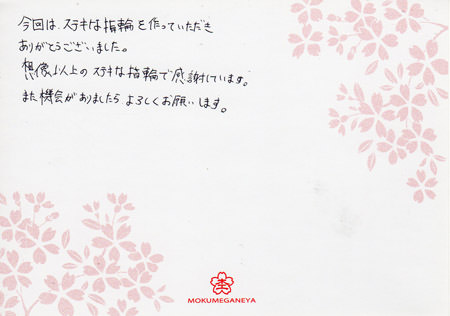 今回は、ステキな指輪を作っていただき
ありがとうございました。
想像以上のステキな指輪で感謝しています。
また機会がありましたらよろしくお願いします。
杢
MOKUMEGANEYA